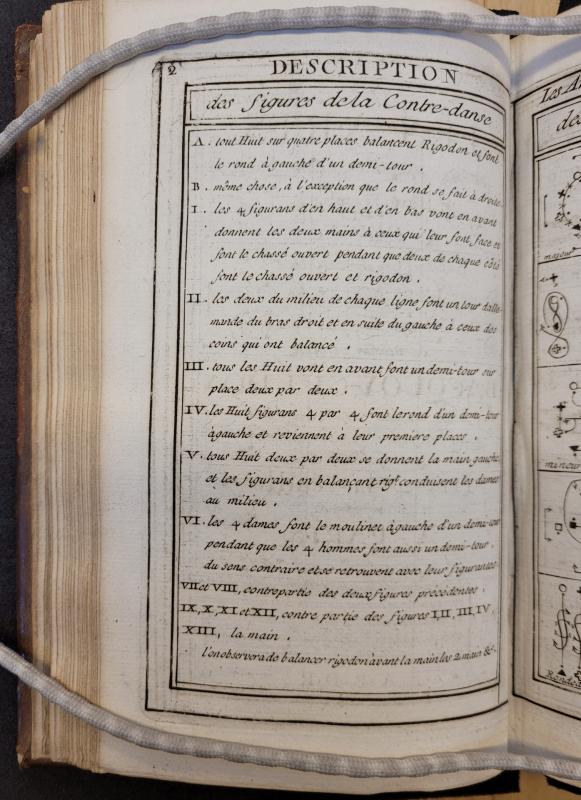 2
DESCRIPTION
des figures de la Contre-danse
A. tout Huit sur quatre places balancent Rigodon et font
le rond à gauche d'un demi-tour.
B. même chose, à l'exception que le rond se fait à droite
I. les 4 figurans d'en haut et d'en bas vont en avant
donnent les deux mains à ceux qui leur font face et
font le chassé ouvert pendant que deux de chaque côté
font le chassé ouvert et rigodon.
II. les deux du milieu de chaque ligne font un tour d'alle-
mande du bras droit et en suite du gauche à ceux des
coins qui ont balancé.
III. tous les Huit vont en avant font un demi-tour sur
place deux par deux.
IV. les Huit figurans 4 par 4 font le rond d'un demi-tour
à gauche et reviennent à leur premiere places.
V. tous Huit deux par deux se donnent la main gauche
et les figurans en balançant rigd. conduisent les dames
au milieu.
VI. les 4 dames font le moulinet à gauche d'un demi-tour
pendant que les 4 hommes font aussi un demi-tour.
du sens contraire et se retrouvent avec leur figurantes
VII et VIII, contrepartie des deux figures précédentes.
IX, X, XI et XII, contre partie des figures I, II, III, IV,
XIII, la main.
l'on observera de balancer rigodon avant la main les 2 mains &c.
Les
de
majeur
mineur
B.
Rondeau